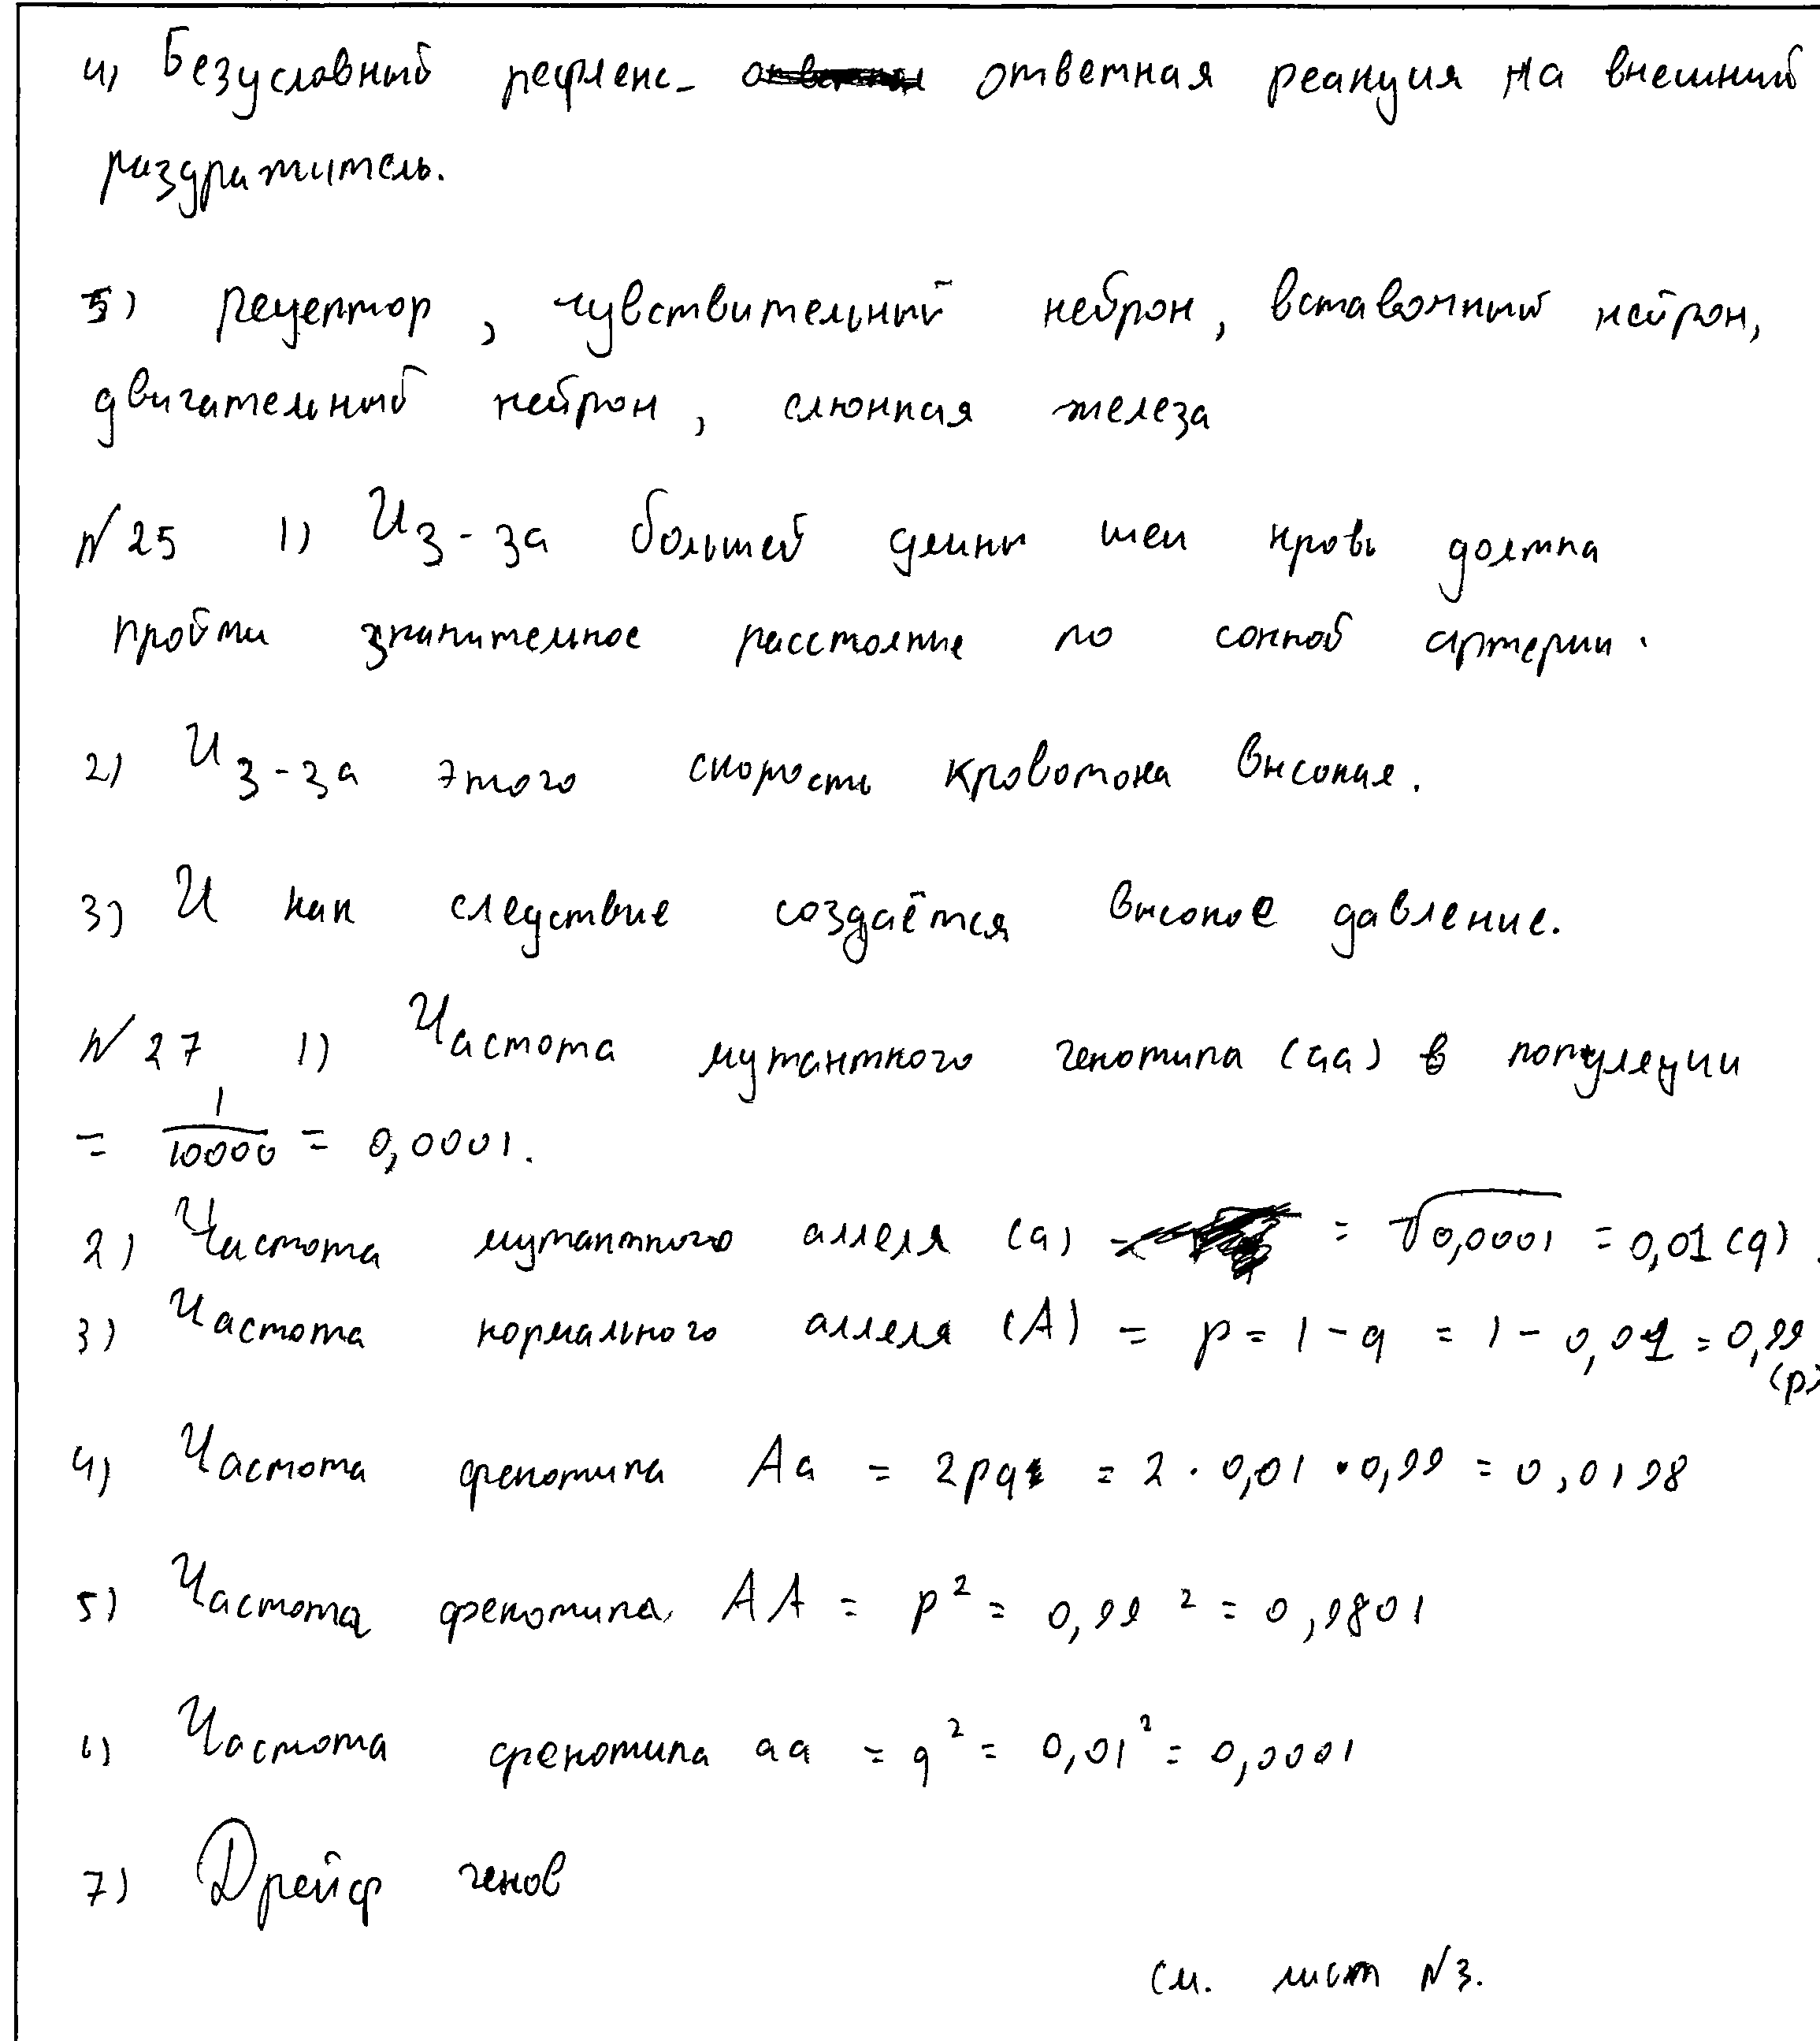 4) Безусловный рефлекс - ответная реакция на внешний
раздражитель.
5) Рецептор, чувствительный нейрон, вставочный нейрон,
двигательный нейрон, слюнная железа
№25 1) Из-за большей длины шеи кровь должна
пройти значительное расстояние по сонной артерии.
2) Из-за этого скорость кровотока высокая.
3) И как следствие создаётся высокое давление.
№27 1) Частота мутантного генотипа (aa) в популяции
= 1/10000 = 0,0001.
2) Частота мутантного аллеля (a) = √0,0001 = 0,01 (q).
3) Частота нормального аллеля (A) = p = 1 - q = 1 - 0,01 = 0,99
(p)
4) Частота фенотипа Aa = 2pq = 2 · 0,01 · 0,99 = 0,0198
5) Частота фенотипа AA = p² = 0,99² = 0,9801
6) Частота фенотипа aa = q² = 0,01² = 0,0001
7) Дрейф генов
см. лист №3.